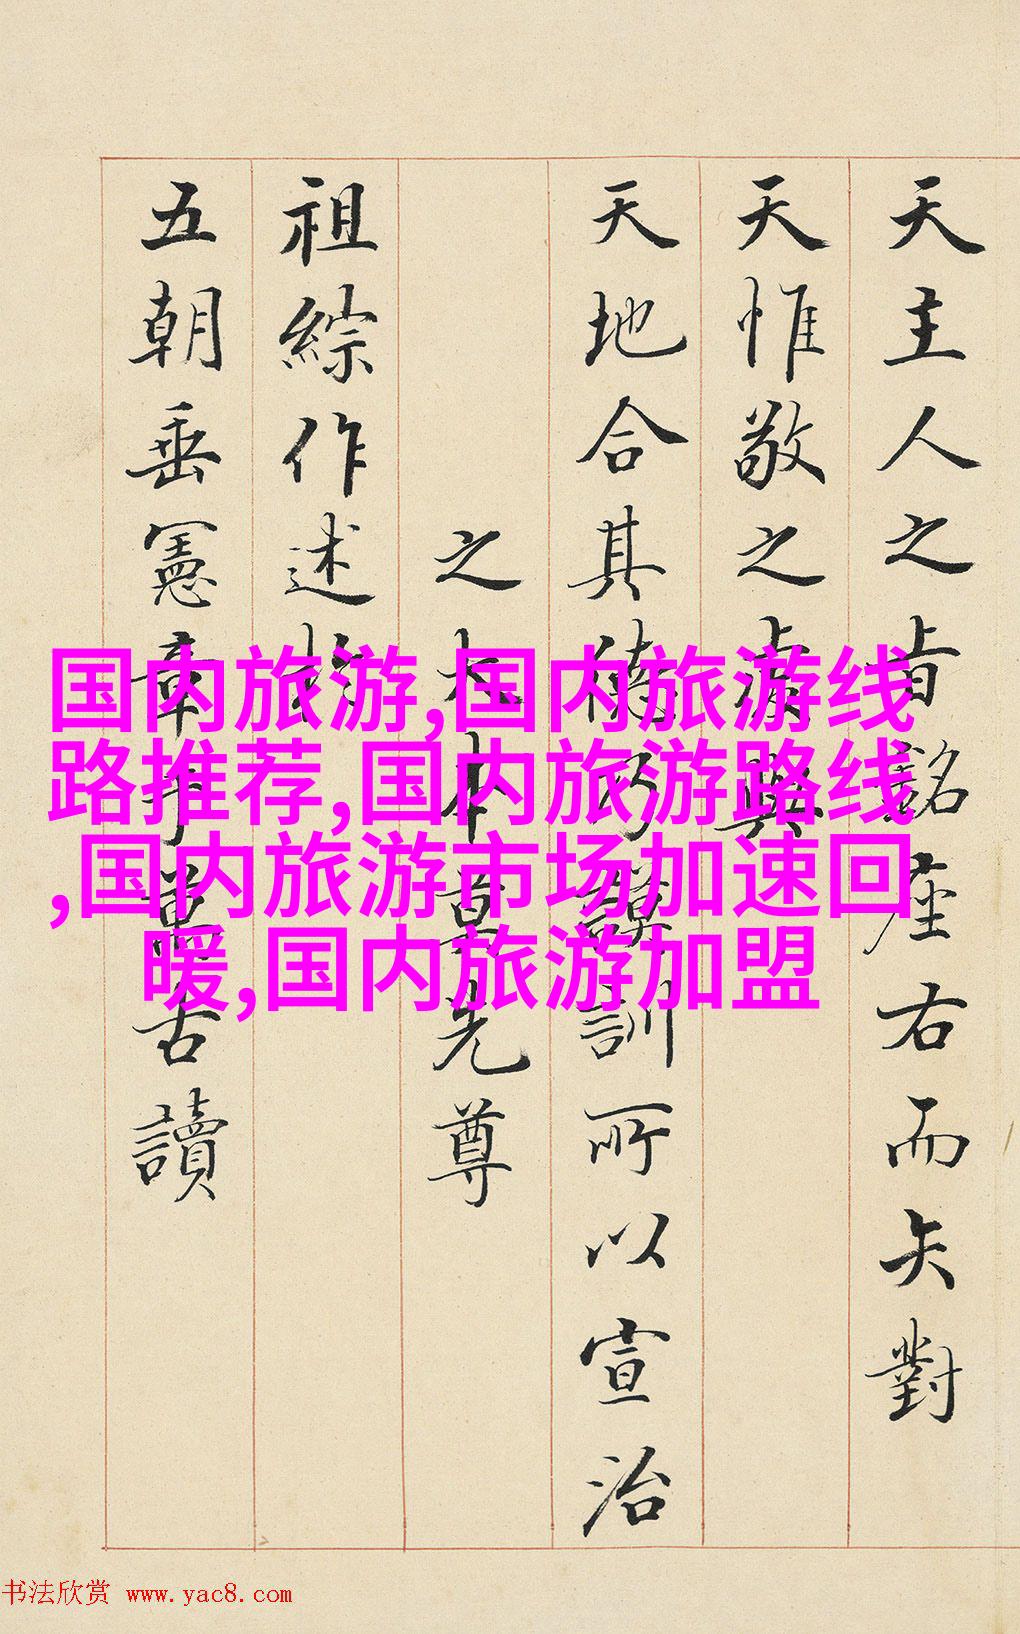 天主人之旨銘座右而矢對
天惟敬之虔與
天地合其德乃謨訓所以宣治
之大本莫先尊
祖綜作述於
五朝垂憲章于萬古讀
国内旅游,国内旅游线
路推荐,国内旅游路线
,国内旅游市场加速回
暖,国内旅游加盟
书法欣赏 www.yac8.com